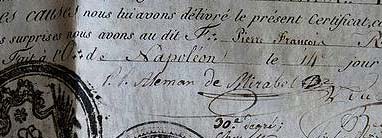 les causes nous lui avons délivré le présent Certificat, co
s surprises nous avons au dit F∴ Pierre François R
Fait à l'O∴ de Napoléon le 14e jour
P. L. Aleman de Mirabel
30e degré;